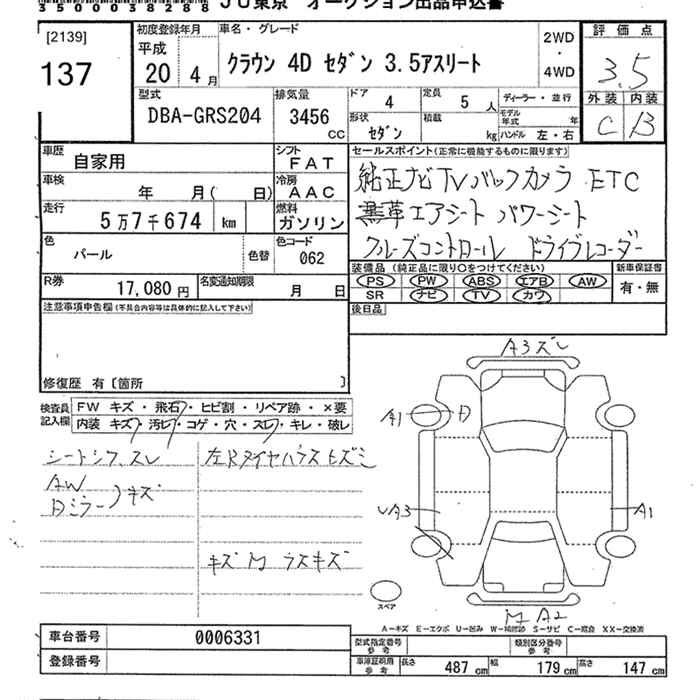 35000038288 JU東京 オークション出品申込書
[2139]
137
初度登録年月
平成
20年 4月
車名・グレード
クラウン 4D セダン 3.5アスリート
2WD
・
4WD
評価点
3.5
外装 内装
C B
型式
DBA-GRS204
排気量
3456
CC
ドア 4
定員 5 人
ディーラー・並行
形状 セダン
積載 kg
モデル年式 年
ハンドル 左・右
車歴
自家用
シフト
FAT
車検 年 月( 日)
冷房
AAC
走行
5万7千674 km
燃料
ガソリン
色
パール
色替
色コード
062
R券
17,080 円
名変通知期限
月 日
セールスポイント(正常に機能するものに限ります)
純正ナビTVバックカメラ ETC
黒革エアシート パワーシート
クルーズコントロール ドライブレコーダー
装備品 (純正品に限り○をつけてください)
新車保証書
PS PW ABS エアB AW
SR ナビ TV カワ
有・無
後日品
注意事項申告欄(不具合内容等は具体的に記入して下さい)
修復歴 有〔箇所 〕
検査員記入欄
FW キズ・飛石・ヒビ割・リペア跡・×要
内装 キズ・汚レ・コゲ・穴・スレ・キレ・破レ
シートシワ、スレ
AW
Dミラー)キズ
左Rタイヤハウスヒズミ
キズ M ラスキズ
A3ズレ
A1
D
A3
A1
M A2
スペア
A-キズ E-エクボ U-凹み W-補修跡 S-サビ C-腐食 XX-交換済
車台番号 0006331
登録番号
型式指定番号
参考
類別区分番号
参考
車庫証明用
参考
長さ 487 cm 幅 179 cm 高さ 147 cm